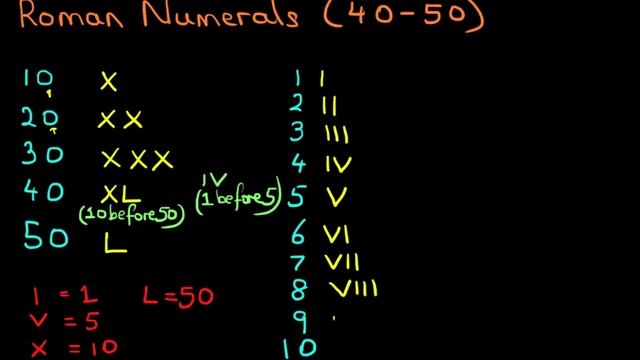 Roman Numerals (40-50)
10 X
20 XX
30 XXX
40 XL
(10 before 50)
50 L
IV
(1 before 5)
I = 1 L = 50
V = 5
X = 10
1 I
2 II
3 III
4 IV
5 V
6 VI
7 VII
8 VIII
9
10